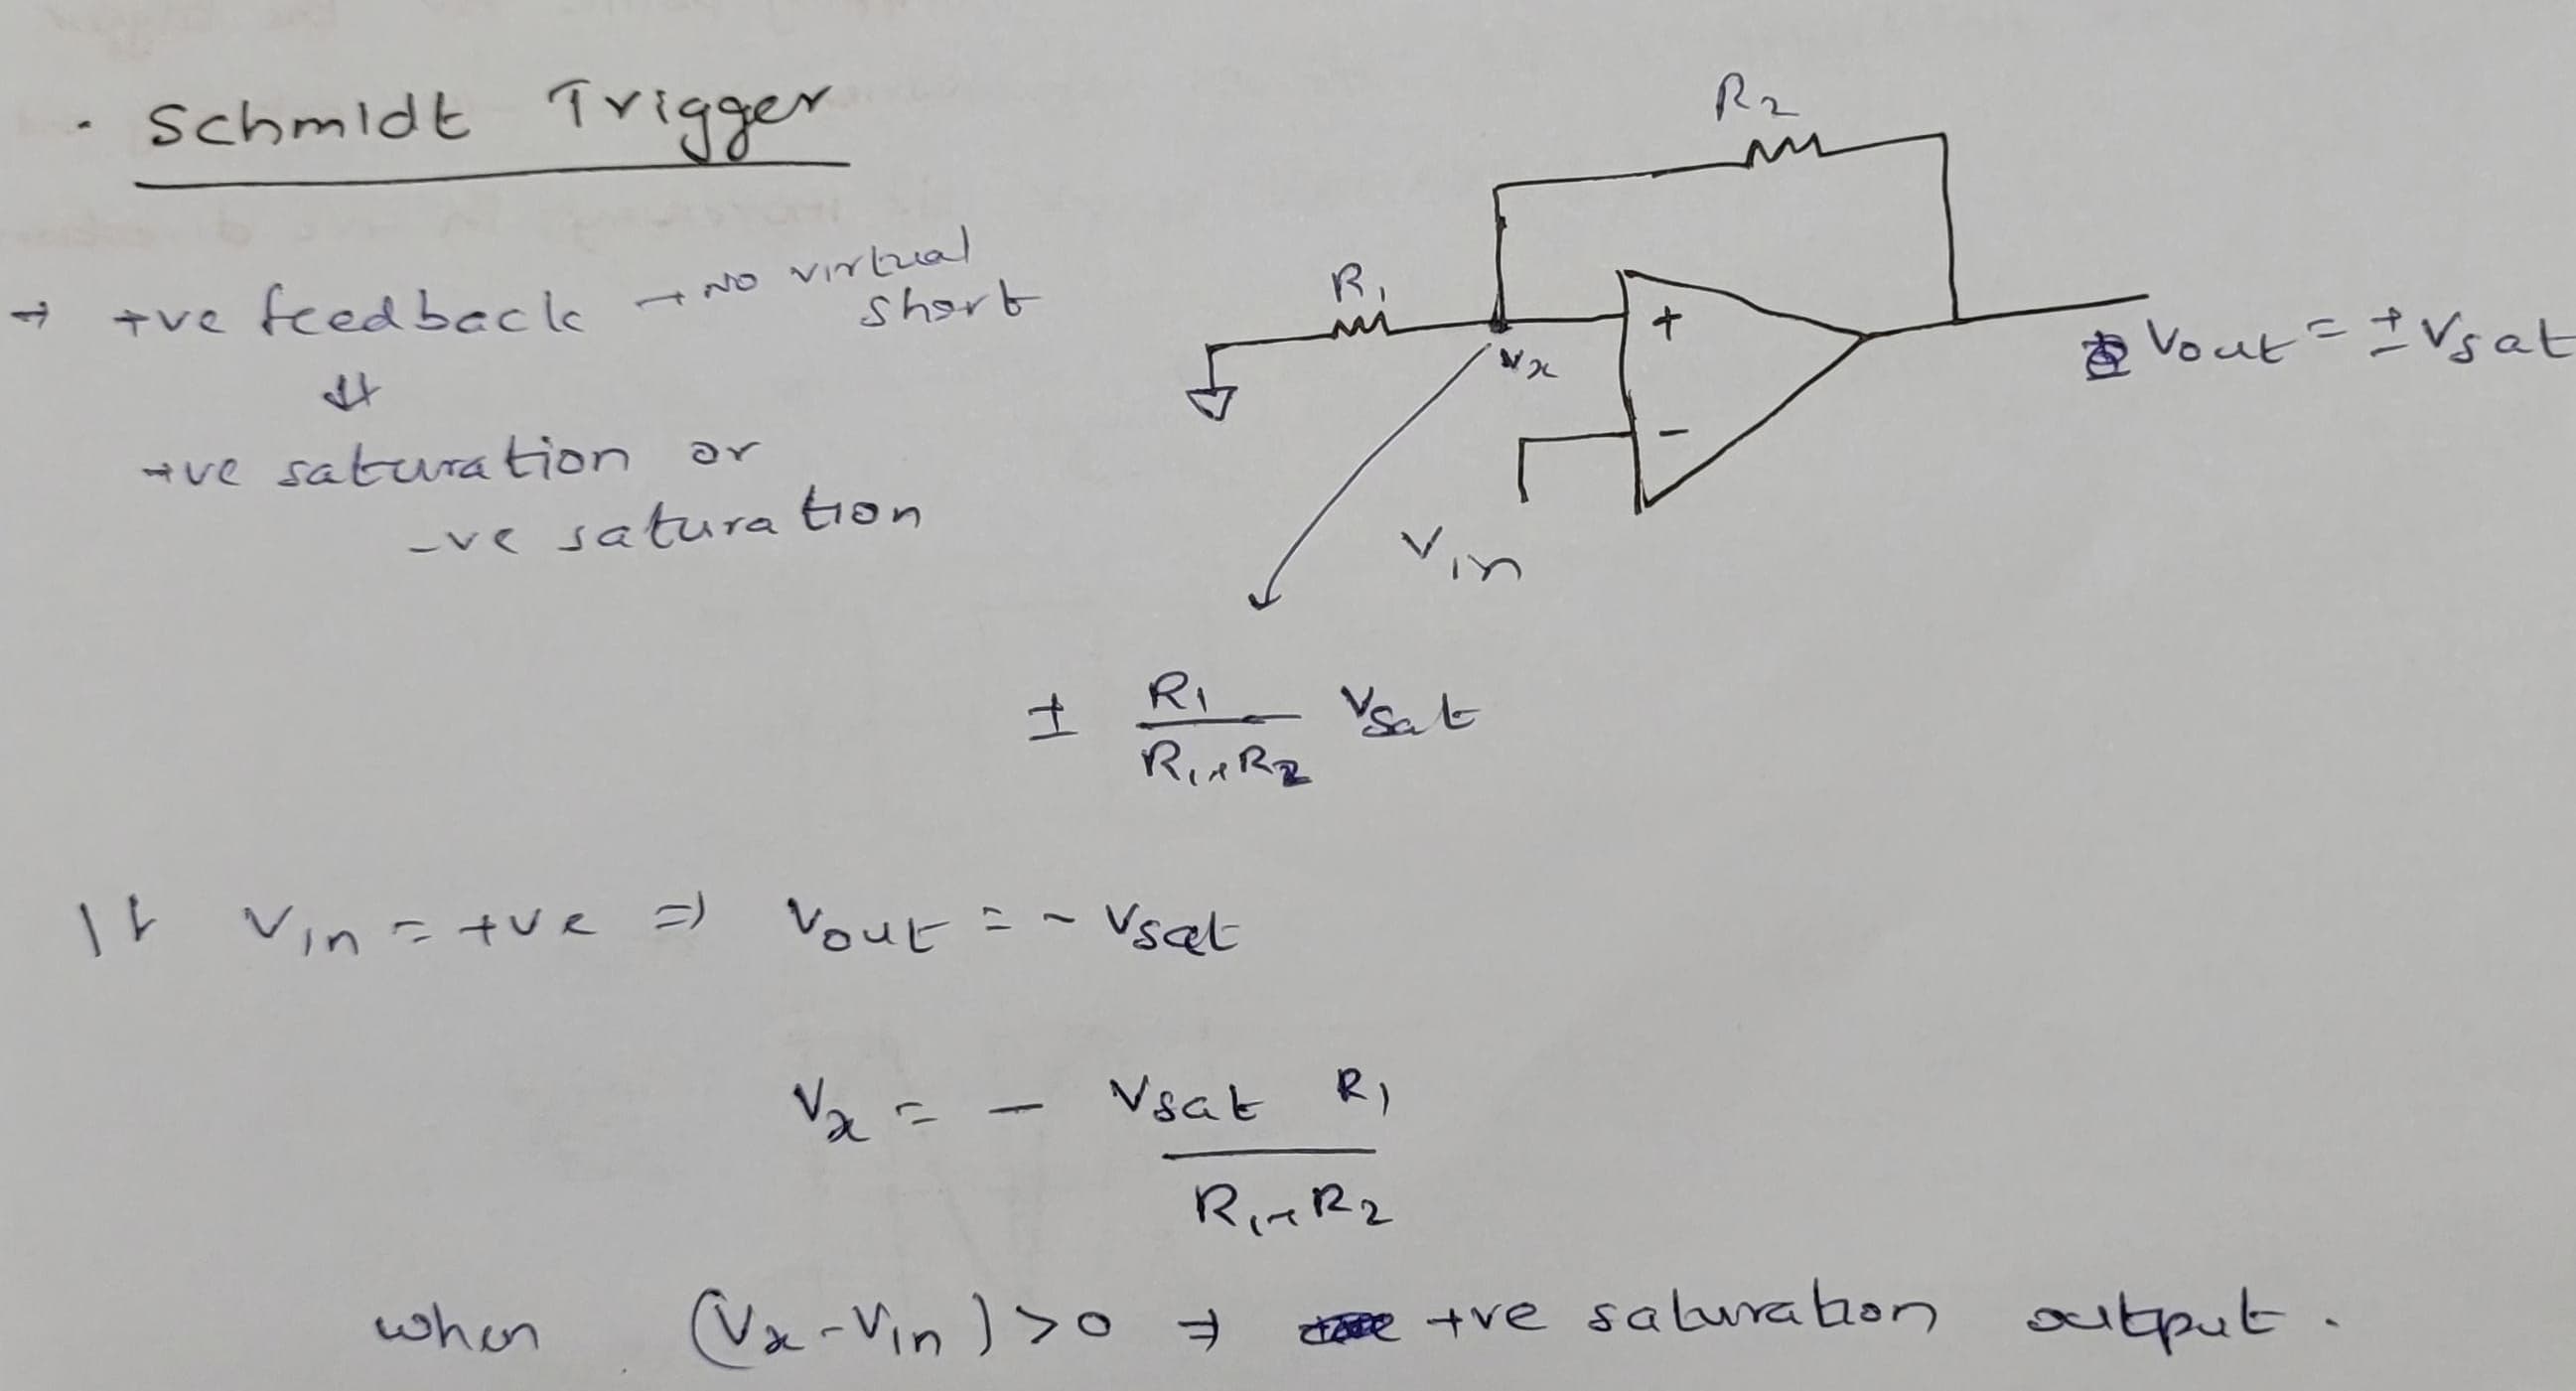 · Schmidt Trigger
R2
⇒ +ve feedback → NO virtual
short
R1
+
Vx
Vout = ± Vsat
⇓
+ve saturation or
-ve saturation
-
Vin
± R1 / R1+R2 Vsat
If Vin = +ve ⇒ Vout = - Vsat
Vx = - Vsat R1
R1+R2
when (Vx - Vin) > 0 ⇒ +ve saturation output.